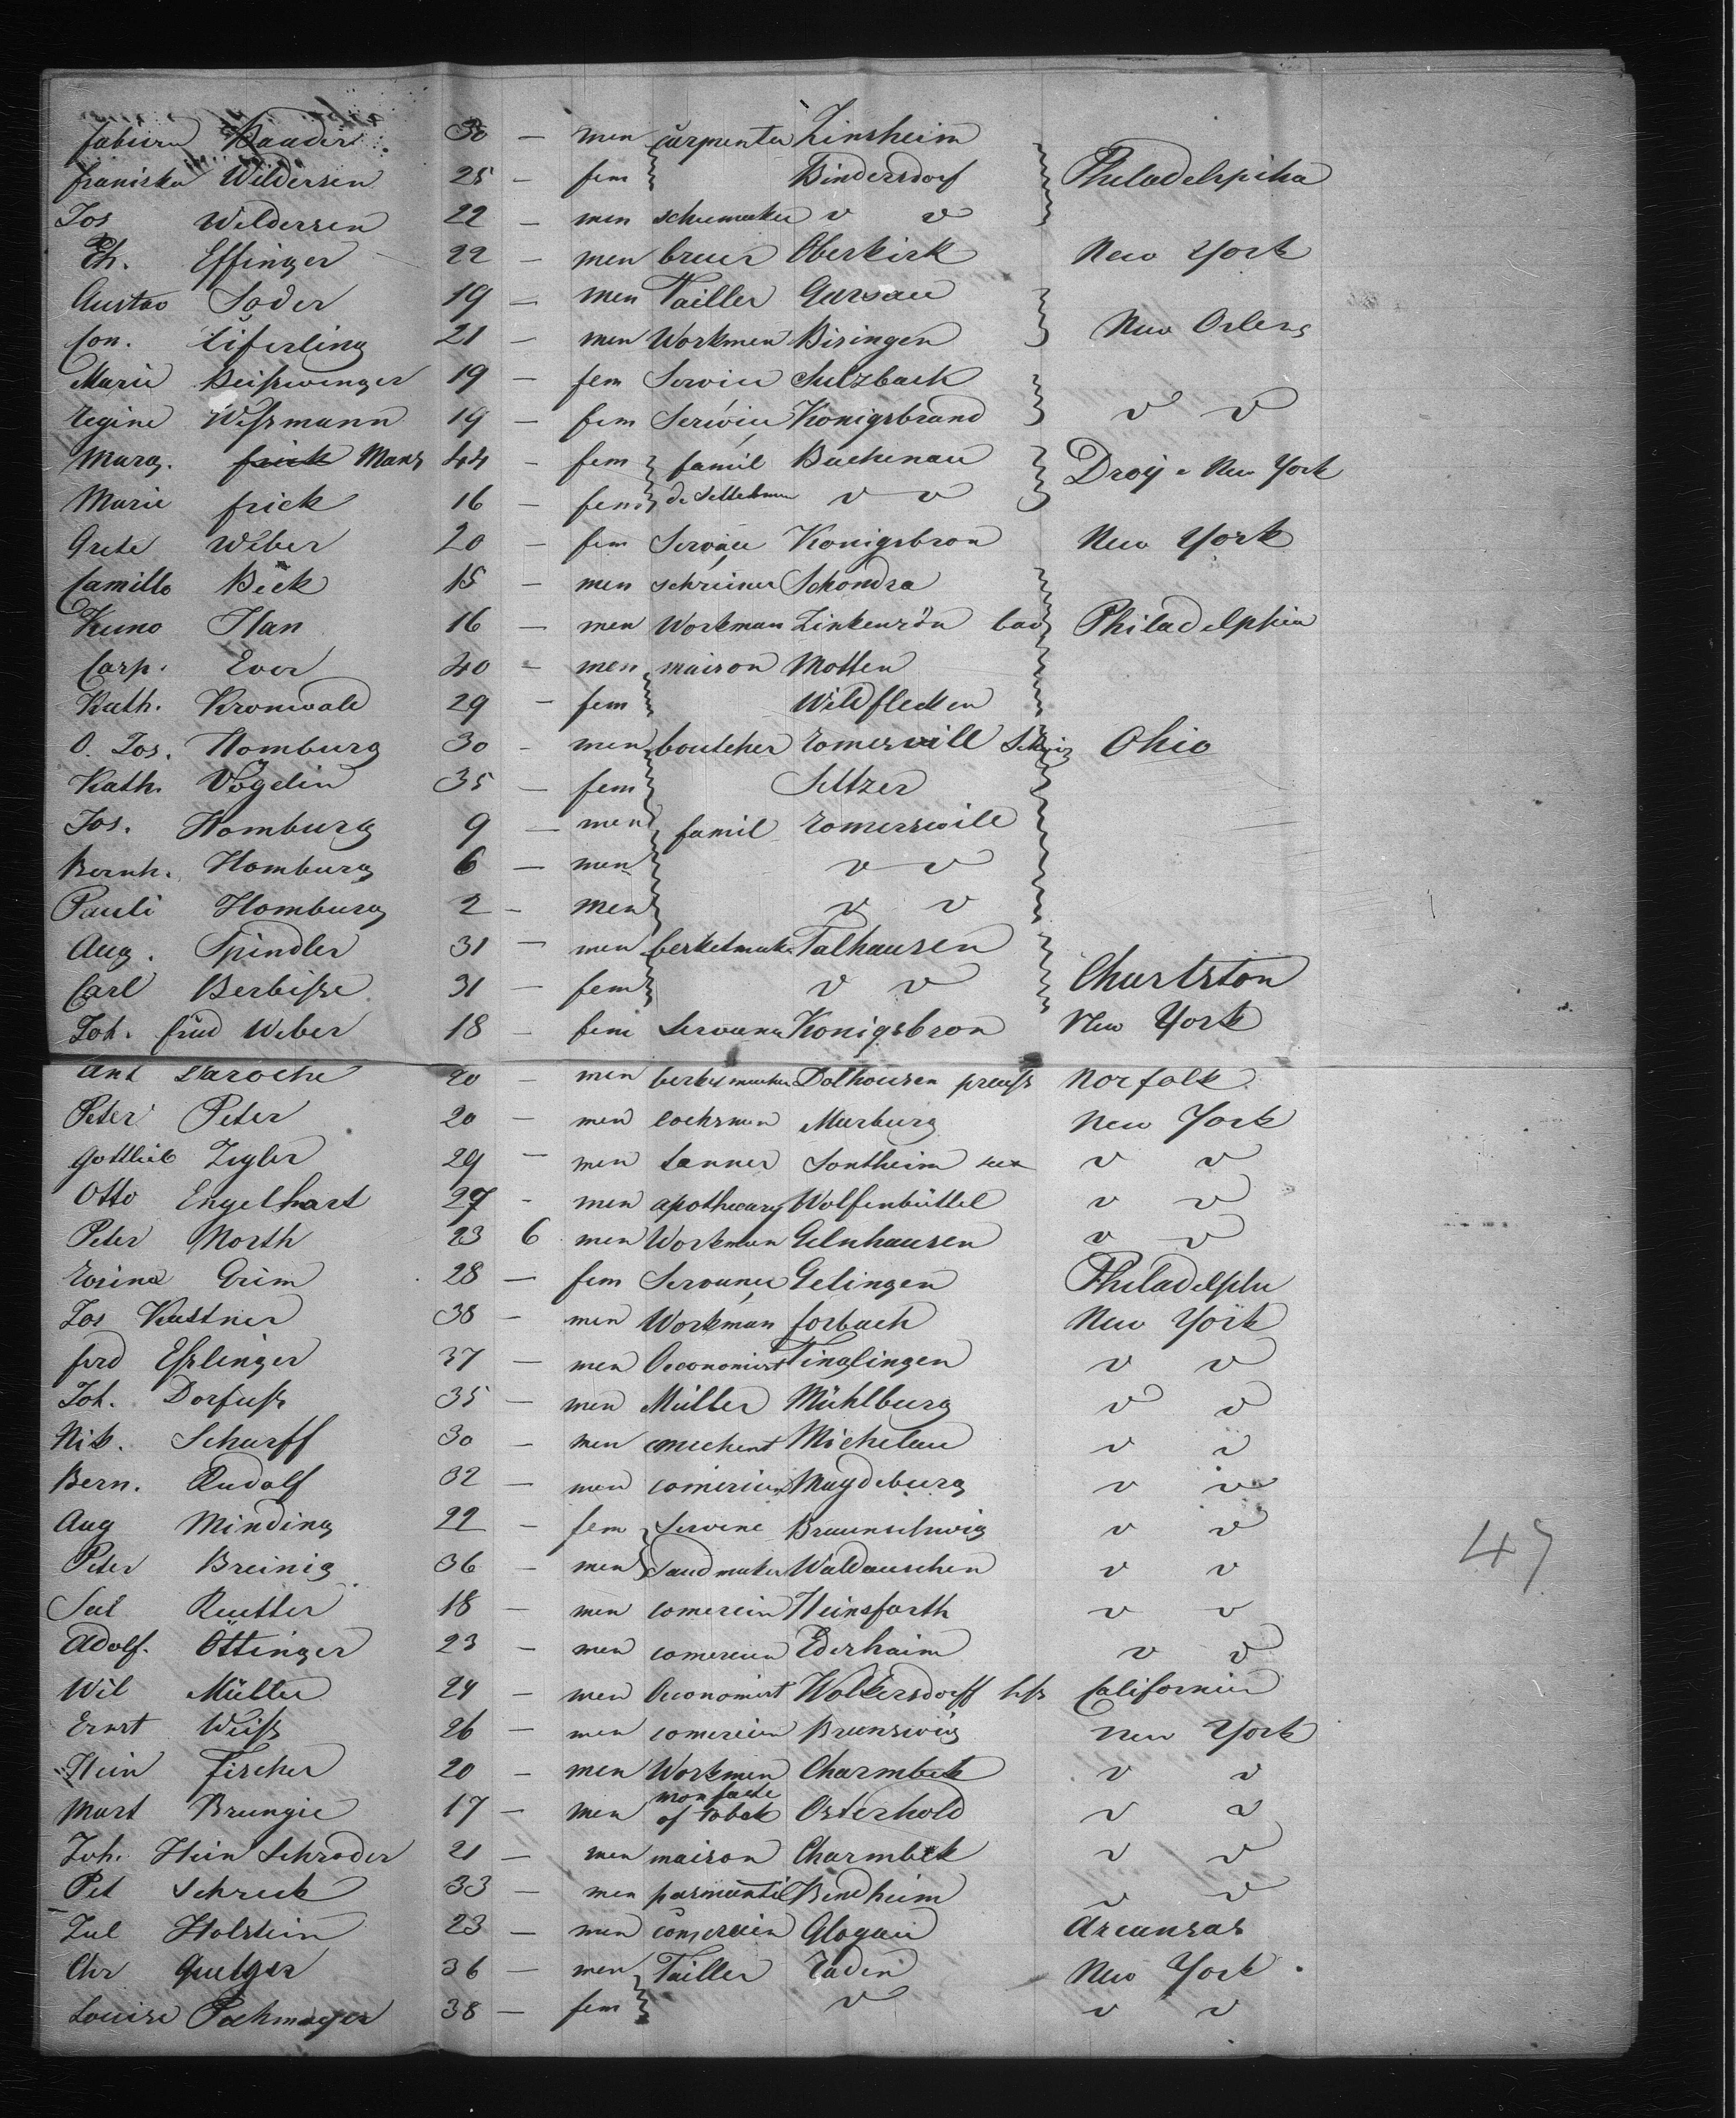 Fabian Baader 30 — men carpenter Zinsheim
Franiska Wildersen 25 — fem Bindersdorf Philadelpiha
Jos Wildersen 22 — men schumaker v v
Ph. Effinger 22 — men breur Oberkirk New York
Gustav Soder 19 — men Tailler Gursau
Con. Eiferling 21 — men Workmen Bisingen New Orlens
Marie Beißwenger 19 — fem Servier Sulzbach
Regine Weßmann 19 — fem Servier Konigsbrand v v
Marg. Manz 44 — fem famil Buchenau Droy New York
Marie frick 16 — fem v v
Grete Weber 20 — fem Servaie Konigsbron New York
Camillo Beck 15 — men schreiner Schondra
Kuno Ilan 16 — men Workman bad Philadelphia
Casp. Ever 40 — men maison Motten
Kath. Kronwald 29 — fem Wildflecken
O. Jos. Homburg 30 — men boutcher Romerswill Ohio
Kath. Vögelin 35 — fem Seltzer
Jos. Homburg 9 — men famil Romerswill
Bernh. Homburg 6 — men v v
Pauli Homburg 2 — men v v
Aug. Spindler 31 — men Talhausen
Carl Berbiße 31 — fem v v Charlston
Joh. frid Weber 18 — fem Konigsbron New York
Ant Laroche 20 — men Dolhousen preuß Norfolk
Peter Peter 20 — men Marburg New York
Gottlieb Zigler 29 — men tanner Sontheim v v
Otto Engelhart 27 - men apothecary Wolfenbüttel v v
Peter North 23 6 men Workmen Gelnhausen v v
Rosina Grim 28 — fem Gelingen Philadelphi
Jos Kastner 38 — men Workman forbach New York
ferd Eßlinger 37 — men Oeconomist Tinglingen v v
Joh. Dorfuß 35 — men Müller Mühlburg v v
Nik. Scharff 30 — men Michelau v v
Bern. Rudolf 32 — men comercien Magdeburg v v
Aug Minding 22 — fem Servene Braunschwig v v
Peter Breinig 36 — men Waldauschen v v
Sal Reutter 18 — men comercin Heinsfarth v v
Adolf. Öttinger 23 — men comercien Ederhaim v v
Wil Müller 24 — men Oeconomist Wolkersdorff heß Californien
Ernst Weiß 26 — men comercien Brunswig New York
Hein fischer 20 — men Workmen Charmbek v v
Mart Brungie 17 — men monfacte of tobak Osterhold v v
Joh. Hein Schroder 21 — men maison Charmbek v v
Pet Schreck 33 — men v v
Jul Holstein 23 — men comercien Glogau Arcansas
Chr 36 — men Tailler Raden New York
Louise 38 — fem v v v
47